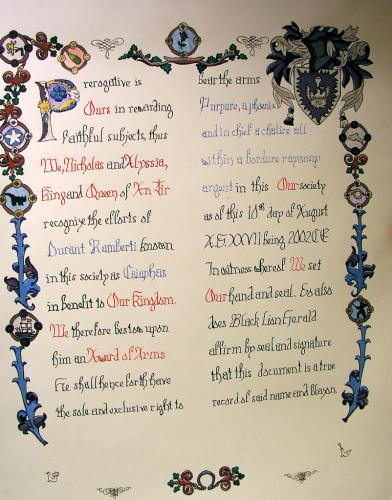 Prerogative is
Ours in rewarding
faithful subjects, thus
We, Nicholas and Alyssia,
King and Queen of An Tir
recognize the efforts of
Durant Ramberti known
in this society as Caiaphas
in benefit to Our Kingdom.
We therefore bestow upon
him an Award of Arms
He shall henceforth have
the sole and exclusive right to
bear the arms
Purpure, a phoenix
and in chief a chalice all
within a bordure rayonny
argent in this Our society
as of this 10th day of August
A.S. XXXVII being 2002 CE
In witness whereof We set
Our hand and seal. As also
does Black Lion Herald
affirm by seal and signature
that this document is a true
record of said name and blazon.